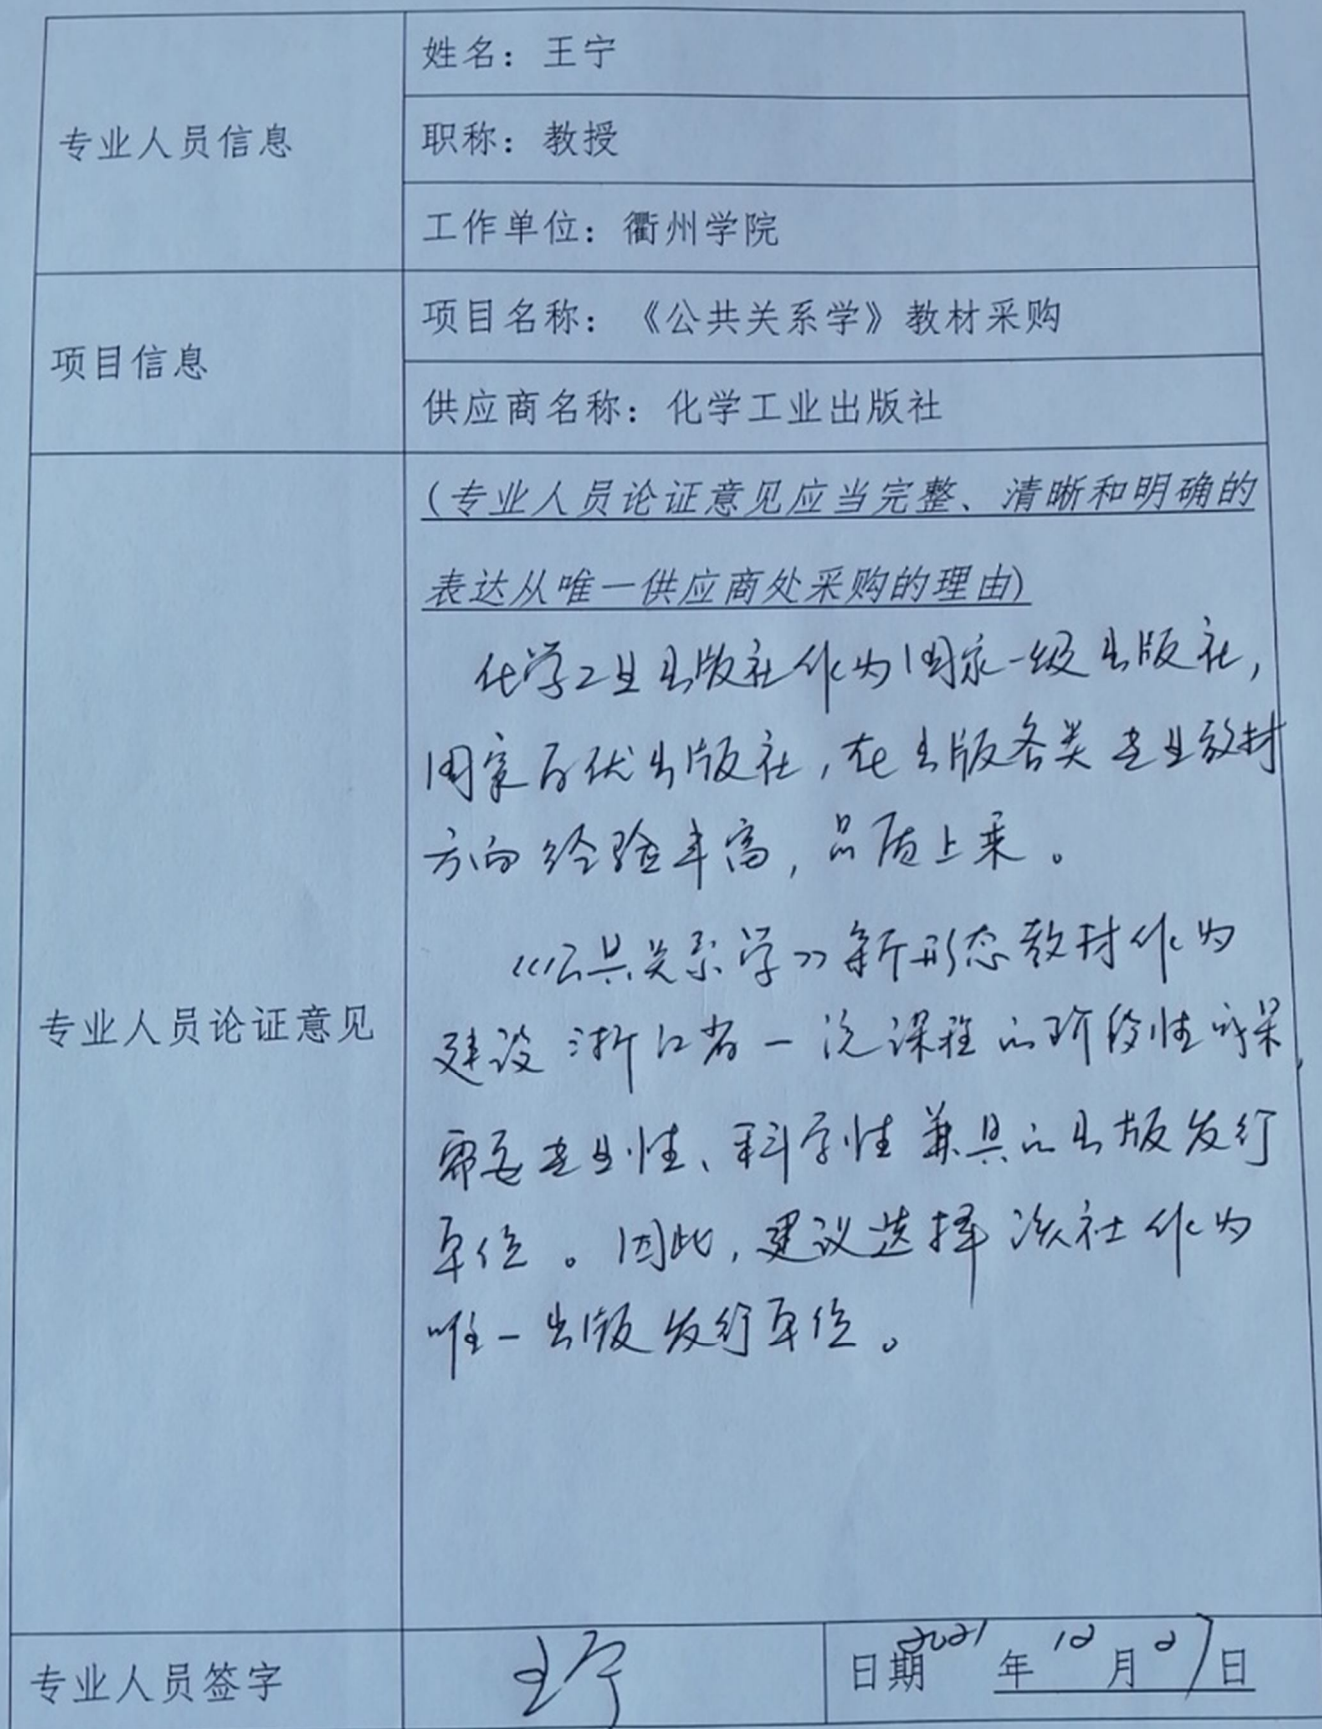 专业人员信息
姓名：王宁
职称：教授
工作单位：衢州学院
项目信息
项目名称：《公共关系学》教材采购
供应商名称：化学工业出版社
专业人员论证意见
(专业人员论证意见应当完整、清晰和明确的
表达从唯一供应商处采购的理由)
化学工业出版社作为国家一级出版社，
国家百优出版社，在出版各类专业教材
方向经验丰富，品质上乘。
《公共关系学》新形态教材作为
建设浙江省一流课程的阶段性成果，
需要专业性、科学性兼具的出版发行
单位。因此，建议选择该社作为
唯一出版发行单位。
专业人员签字
王宁
日期2021年12月27日